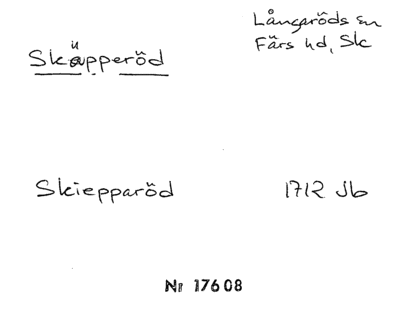 Långaröds sn
Skäpperöd Färs hd, Sk
Skiepparöd 1712 Jb
Nr 17608